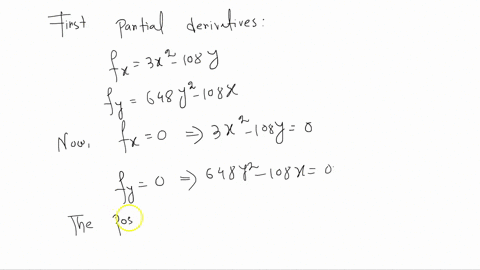 First partial derivatives:
fx = 3x² - 108y
fy = 648y² - 108x
Now, fx = 0 ⇒ 3x² - 108y = 0
fy = 0 ⇒ 648y² - 108x = 0
The pos